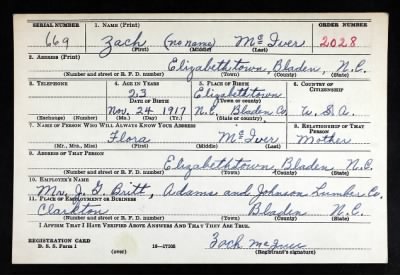 SERIAL NUMBER 1. NAME (Print) ORDER NUMBER
669 Zach (no name) McIver 2028
(First) (Middle) (Last)
2. ADDRESS (Print)
Elizabethtown, Bladen, N.C.
(Number and street or R. F. D. number) (Town) (County) (State)
3. TELEPHONE 4. AGE IN YEARS 5. PLACE OF BIRTH 6. COUNTRY OF CITIZENSHIP
23 Elizabethtown
DATE OF BIRTH (Town or county)
Nov. 24, 1917 N.C. Bladen Co. U. S. A.
(Exchange) (Number) (Mo.) (Day) (Yr.) (State or country)
7. NAME OF PERSON WHO WILL ALWAYS KNOW YOUR ADDRESS 8. RELATIONSHIP OF THAT PERSON
Flora McIver Mother
(Mr., Mrs., Miss) (First) (Middle) (Last)
9. ADDRESS OF THAT PERSON
Elizabethtown, Bladen, N.C.
(Number and street or R. F. D. number) (Town) (County) (State)
10. EMPLOYER'S NAME
Mr. J. G. Britt, Adams and Johnson Lumber Co.
11. PLACE OF EMPLOYMENT OR BUSINESS
Clarkton Bladen N.C.
(Number and street or R. F. D. number) (Town) (County) (State)
I AFFIRM THAT I HAVE VERIFIED ABOVE ANSWERS AND THAT THEY ARE TRUE.
REGISTRATION CARD
D. S. S. Form 1 (over) 16—17105 Zach McIver
(Registrant's signature)